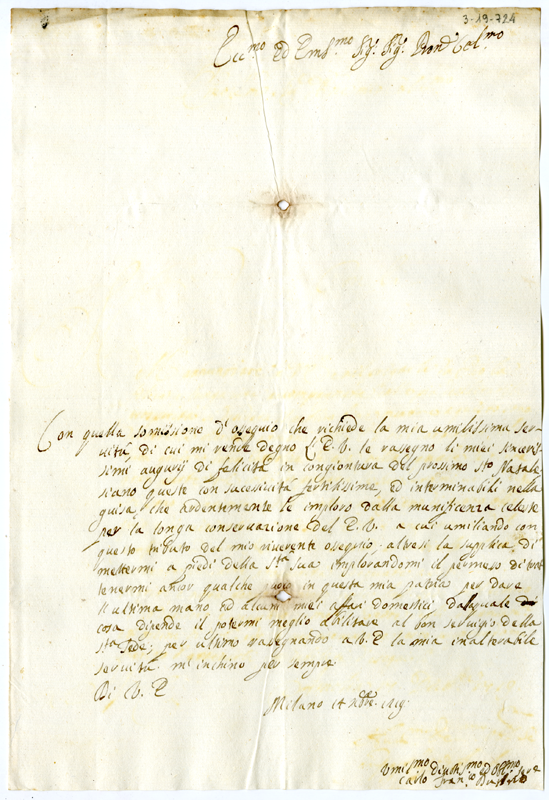 3-19-724
Ecc.mo ed Em.mo Sig.r Sig.r Pron Col.mo
Con quella somissione d'ossequio che richiede la mia umilissima ser-
vitù, di cui mi rende degno V. E. le rasegno li miei sinceris-
simi augurij di felicità in congiontura del prossimo Sto Natale
siano queste con sucessività fertilissime, ed interminabili nella
guisa, che ardentemente le imploro dalla munificenza celeste
per la longa conservazione del E.V. a cui umiliando con
questo tributo del mio riverente ossequio, altresì la supplica, di
mettermi a piedi della Sta Sua implorandomi il permesso di
tenermi ancor qualche in questa mia patria per dare
l'ultima mano ed alcuni miei affari domestici dalquale
cosa dipende il potermi meglio abilitare al bon servigio della
Sta Sede; per ultimo rasegnando a V. E. la mia inalterabile
servitù m'inchino per sempre
Di V. E.
Milano 14 Xbre
Umil.mo Divotis.mo ed Obl.mo
Carlo Fran.co